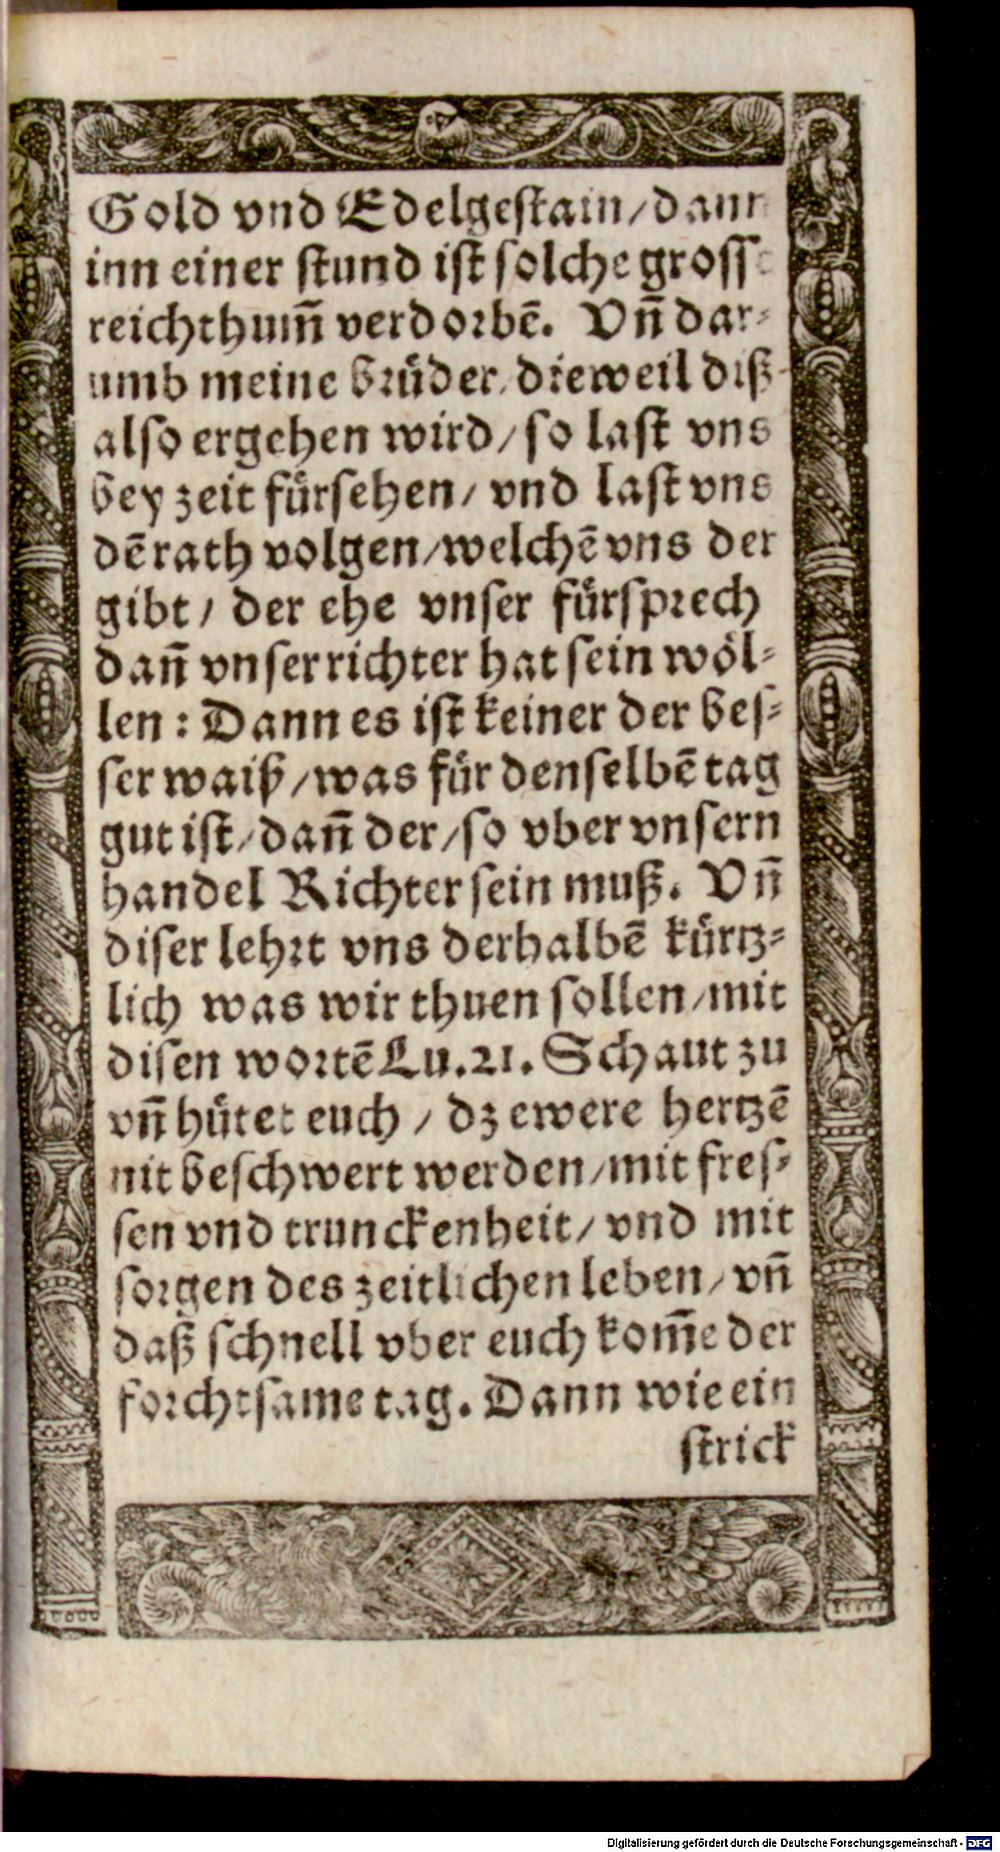 Gold vnd Edelgestain/dann
inn einer stund ist solche grosse
reichthum̃ verdorbẽ. Vñ dar-
umb meine brüder/dieweil diß
also ergehen wird/so last vns
bey zeit fürsehen/ vnd last vns
dẽ rath volgen/welchẽ vns der
gibt/ der ehe vnser fürsprech
dañ vnser richter hat sein wöl-
len: Dann es ist keiner der bes-
ser waiß/was für denselbẽ tag
gut ist/dañ der/so vber vnsern
handel Richter sein muß. Vñ
diser lehrt vns derhalbẽ kürtz-
lich was wir thuen sollen/mit
disen wortẽ Lu.21. Schaut zu
vñ hütet euch / dz ewere hertzẽ
nit beschwert werden/mit fres-
sen vnd trunckenheit/ vnd mit
sorgen des zeitlichen leben/ vñ
daß schnell vber euch kom̃e der
forchtsame tag. Dann wie ein
strick
Digitalisierung gefördert durch die Deutsche Forschungsgemeinschaft - DFG